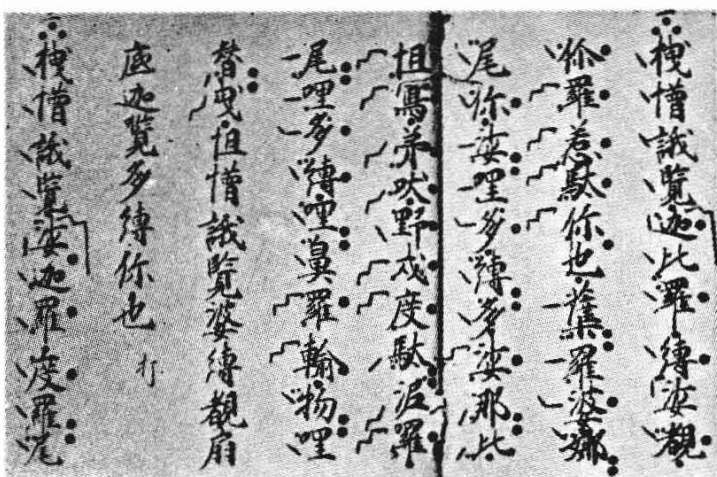 栧憎誐覽迦比羅縛娑覩
你羅惹馱你也蘖羅婆娜
尾你娑哩多縛多娑那比
怛寫弟吠野戍度馱波羅
尾哩多縛哩異羅輸物哩
替曳怛憎誐覽婆縛覩扇
底迦覽多縛你也 打
栧憎誐覽娑迦羅度羅尾